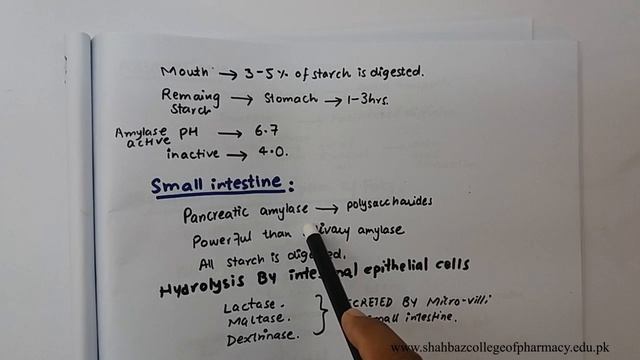 Mouth → 3-5% of starch is digested.
Remaing Starch → Stomach → 1-3hrs.
Amylase active PH → 6.7
inactive → 4.0.
Small intestine:
Pancreatic amylase → polysaccharides
Powerful than amylase
All starch is
Hydrolysis By epithelial cells
Lactase.
Maltase.
Dextrinase.
By Micro-villi
small intestine.
www.shahbazcollegeofpharmacy.edu.pk